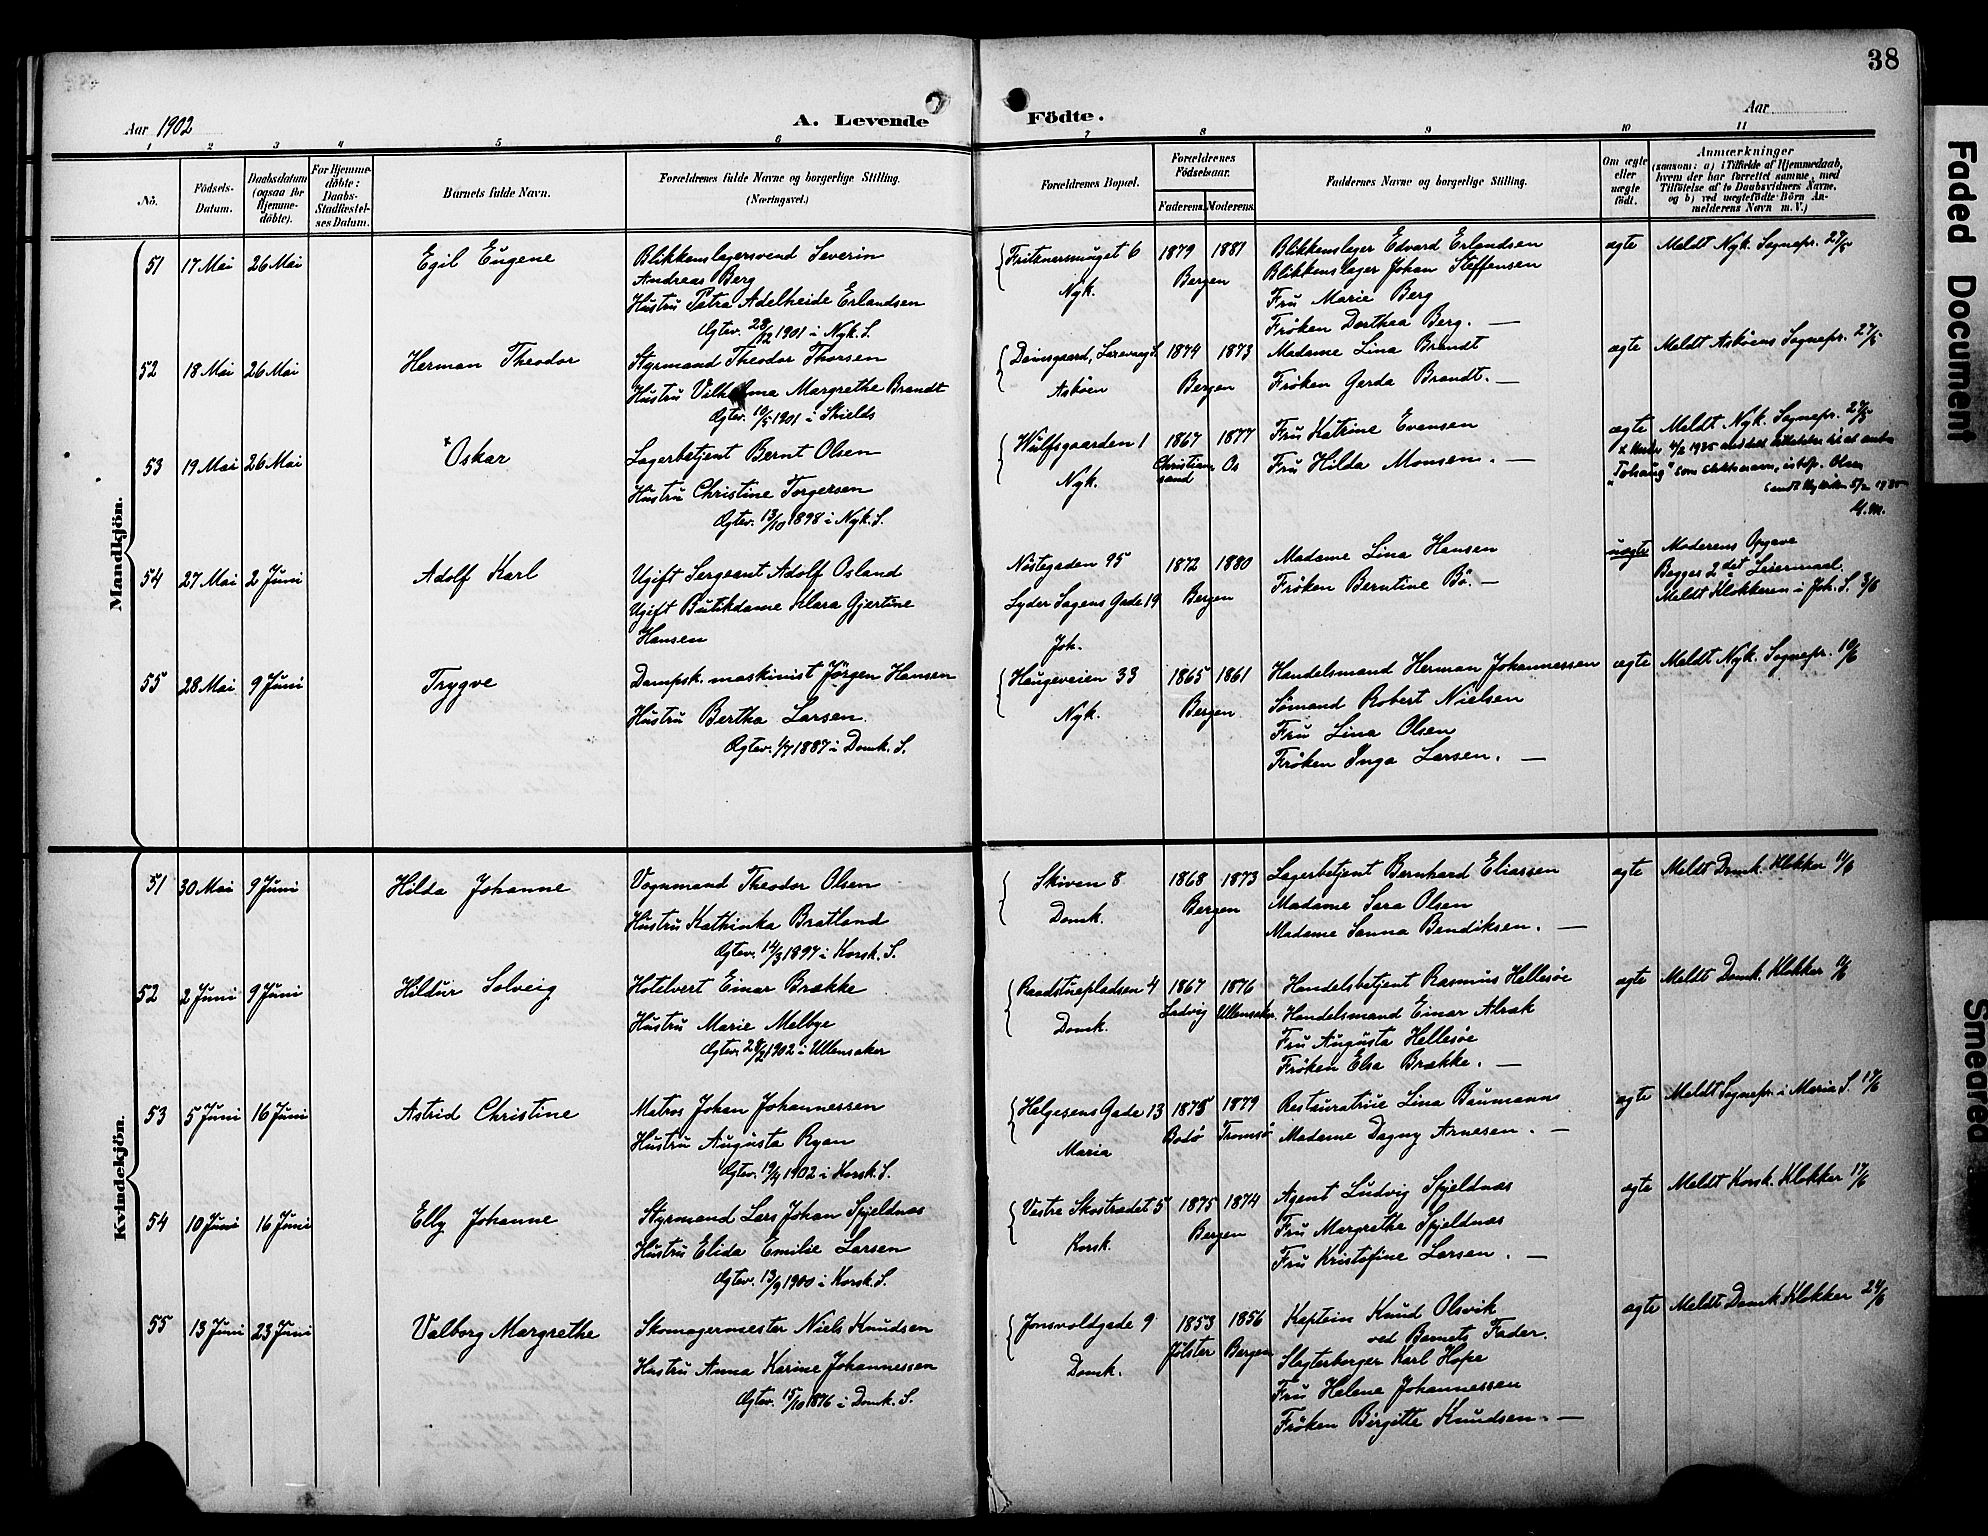 38
Aar 1902
A. Levende
Födte.
Aar
1
2
3
4
5
6
7
8
9
10
11
No.
Födsels-
Datum.
Daabsdatum
(ogsaa for
Hjemme-
döbte).
For Hjemme-
döbte:
Daabs-
Stadfæstel-
ses Datum.
Barnets fulde Navn.
Forældrenes fulde Navne og borgerlige Stilling.
(Næringsvei.)
Forældrenes Bopæl.
Forældrenes
Födselsaar.
Faderens. Moderens.
Faddernes Navne og borgerlige Stilling.
Om ægte
eller
uægte
födt.
Anmærkninger
(saasom: a) i Tilfælde af Hjemmedaab,
hvem der har forrettet samme, med
Tilföielse af to Daabsvidners Navne,
og b) ved uægtefödte Börn An-
melderens Navn m. V.)
Mandkjön.
51 17 Mai 26 Mai Egil Eugene
Blikkenslagersvend Severin
Andreas Berg
Hustru Petra Adelheide Erlandsen
Ægtev. 28/12 1901 i Nyk. S.
Fritznersmuget 6
Nyk.
1879 1881
Bergen
Blikkenslager Edvard Erlandsen
Blikkenslager Johan Steffensen
Fru Marie Berg
Fröken Dorthea Berg. —
ægte Meldt Nyk. Sognepr. 27/5
52 18 Mai 26 Mai Herman Theodor
Styrmand Theodor Thorsen
Hustru Vilhelmina Margrethe Brandt
Ægtev. 10/5 1901 i Shields
Damsgaard, Laxevaag S.
Askøen
1874 1873
Bergen
Madame Lina Brandt
Fröken Gerda Brandt. —
ægte Meldt Askøens Sognepr. 27/5
53 19 Mai 26 Mai Oskar
Lagerbetjent Bernt Olsen
Hustru Christine Torgersen
Ægtev. 13/10 1898 i Nyk. S.
Wulfsgaarden 1
Nyk.
1867 1877
Christian- Os
sand
Fru Katrine Evensen
Fru Hilda Monsen. —
ægte Meldt Nyk. Sognepr. 27/5
som slektsnavn, istf. Olsen
54 27 Mai 2 Juni Adolf Karl
Ugift Sergeant Adolf Osland
Ugift Butikdame Klara Gjertine
Hansen
Nöstegaden 95
Lyder Sagens Gade 19
Joh.
1872 1880
Bergen
Madame Lina Hansen
Fröken Berntine Bö. —
uægte Moderens Opgave
Begges 2det Leiermaal.
Meldt Klokkeren i Joh. S. 3/6
55 28 Mai 9 Juni Trygve
Dampsk. maskinist Jörgen Hansen
Hustru Bertha Larsen.
Ægtev. 1/7 1887 i Domk. S.
Haugeveien 33
Nyk.
1865 1861
Bergen
Handelsmand Herman Johannessen
Sömand Robert Nielsen
Fru Lina Olsen
Fröken Inga Larsen. —
ægte Meldt Nyk. Sognepr. 10/6
Kvindekjön.
51 30 Mai 9 Juni Hilda Johanne
Vognmand Theodor Olsen
Hustru Kathinka Bratland
Ægtev. 14/3 1897 i Korsk. S.
Skiven 8
Domk.
1868 1873
Bergen
Lagerbetjent Bernhard Eliassen
Madame Sara Olsen
Madame Sanna Bendiksen. —
ægte Meldt Domk. Klokker 11/6
52 2 Juni 9 Juni Hildur Solveig
Hotelvert Einar Brække
Hustru Marie Melbye
Ægtev. 28/2 1902 i Ullensaker
Raadstuepladsen 4
Domk.
1867 1876
Ladvig Ullensaker.
Handelsbetjent Rasmus Hellesöe
Handelsmand Einar Alrak
Fru Augusta Hellesöe
Fröken Elsa Brække. —
ægte Meldt Domk. Klokker 11/6
53 5 Juni 16 Juni Astrid Christine
Matros Johan Johannessen
Hustru Augusta Ryan
Ægtev. 19/4 1902 i Korsk. S.
Helgesens Gade 13
Maria
1875 1879
Bodö Tromsö
Restauratrice Lina Baumann
Madame Dagny Arnesen. —
ægte Meldt Sognepr. i Maria S. 17/6
54 10 Juni 16 Juni Elly Johanne
Styrmand Lars Johan Spjeldnæs
Hustru Elida Emilie Larsen
Ægtev. 13/9 1900 i Korsk. S.
Vestre Skostrædet 5
Korsk.
1875 1874
Bergen
Agent Ludvig Spjeldnæs
Fru Margrethe Spjeldnæs
Fru Kristofine Larsen. —
ægte Meldt Korsk. Klokker 17/6
55 13 Juni 23 Juni Valborg Margrethe
Skomagermester Niels Knudsen
Hustru Anna Karine Johannessen
Ægtev. 15/10 1876 i Domk. S.
Jonsvoldgade 9
Domk.
1853 1856
Jölster Bergen
Kaptein Knud Olsvik
ved Barnets Fader.
Slagterborger Karl Hope
Fru Helene Johannessen
Fröken Birgitte Knudsen. —
ægte Meldt Domk. Klokker 24/6
Faded Document
Smeared